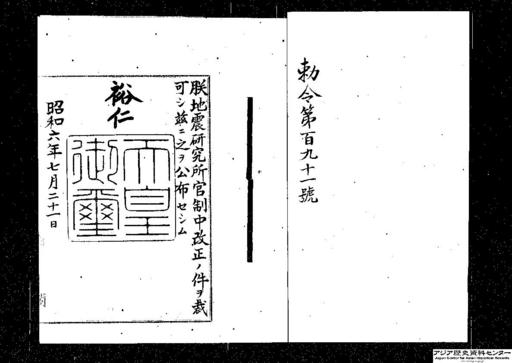 勅令第百九十一號
朕地震研究所官制中改正ノ件ヲ裁
可シ玆ニ之ヲ公布セシム
裕仁
天皇
御璽
昭和六年七月二十一日
アジア歴史資料センター
Japan Center for Asian Historical Records